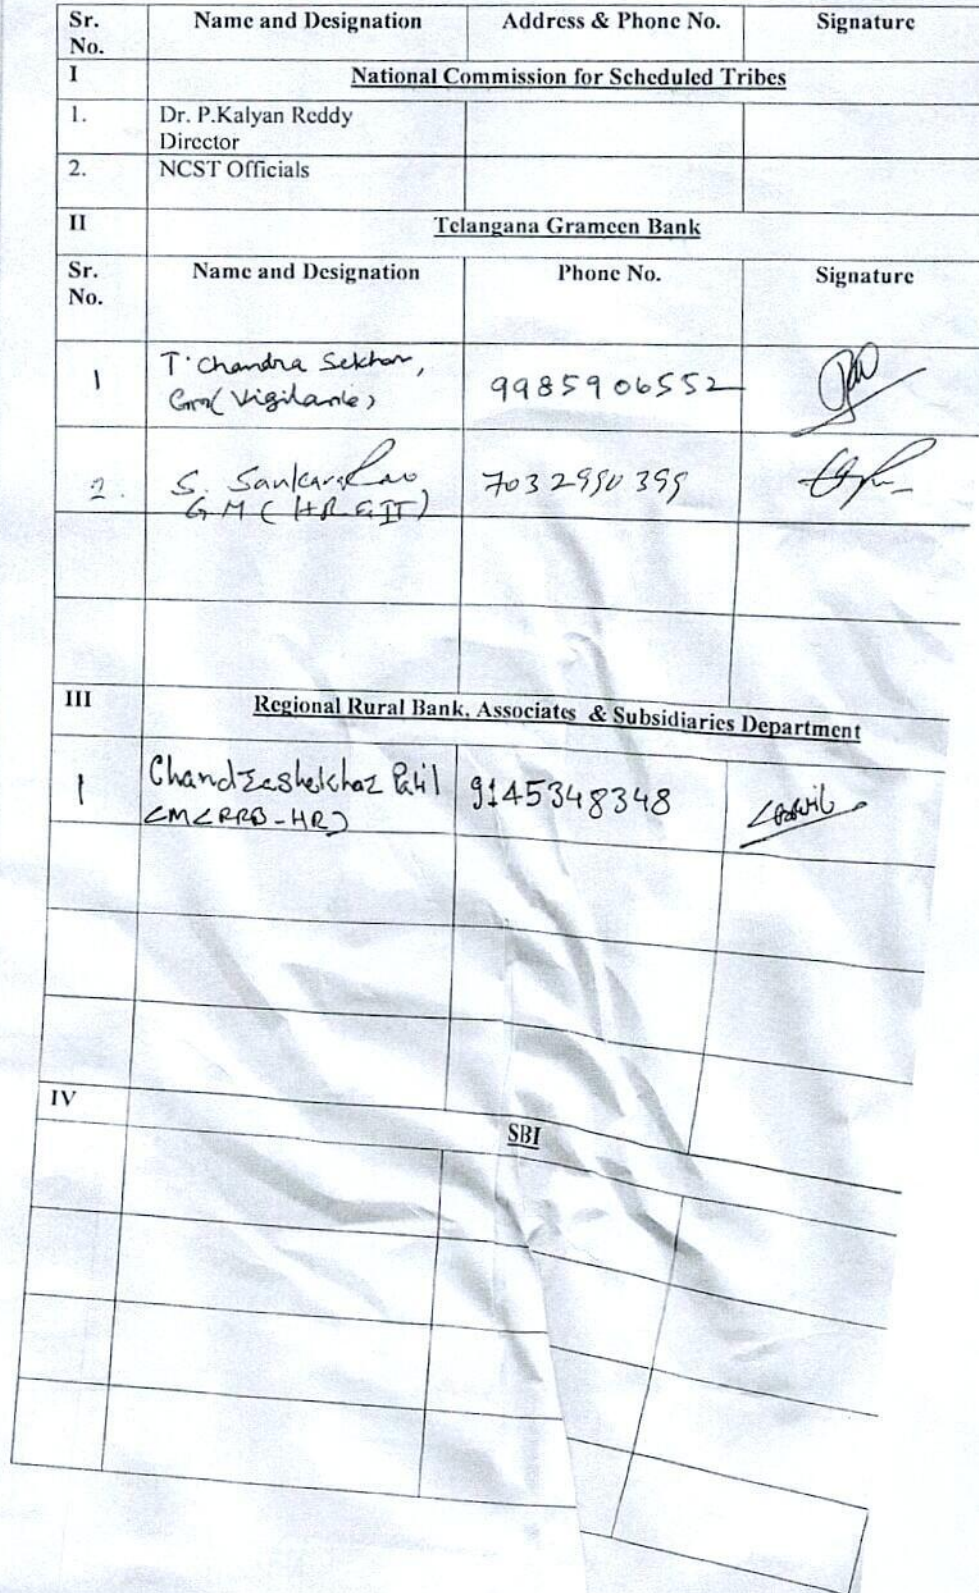 Sr. No. Name and Designation Address & Phone No. Signature
I National Commission for Scheduled Tribes
1. Dr. P.Kalyan Reddy
Director
2. NCST Officials
II Telangana Grameen Bank
Sr. No. Name and Designation Phone No. Signature
1 T. Chandra Sekhar, 9985906552
Gm( Vigilance)
2. S. Sankara Rao 7032990399
G.M ( HR & IT)
III Regional Rural Bank, Associates & Subsidiaries Department
1 Chandrashekhar Patil 9145348348
CM(RRB-HR)
IV SBI